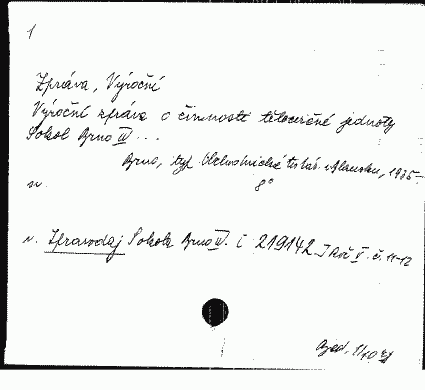 1
Zpráva, Výroční
Výroční zpráva o činnosti tělocvičné jednoty
Sokol Brno IV ...
Brno, typ. Občanská tiskárna v Blansku, 1935-
sv. 8°
v. Zpravodaj Sokola Brno IV. č 219142 Roč V. č. 11-12